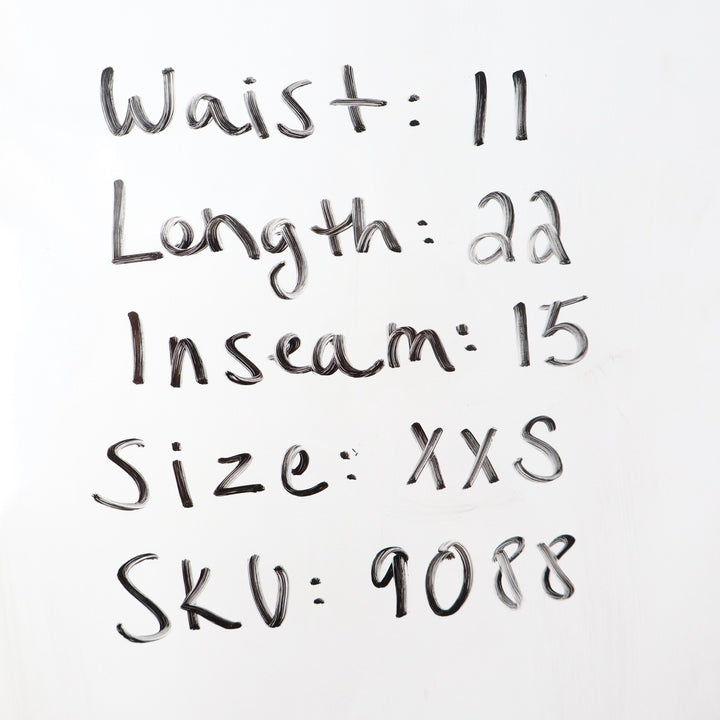 Waist: 11
Length: 22
Inseam: 15
Size: XXS
SKU: 9088